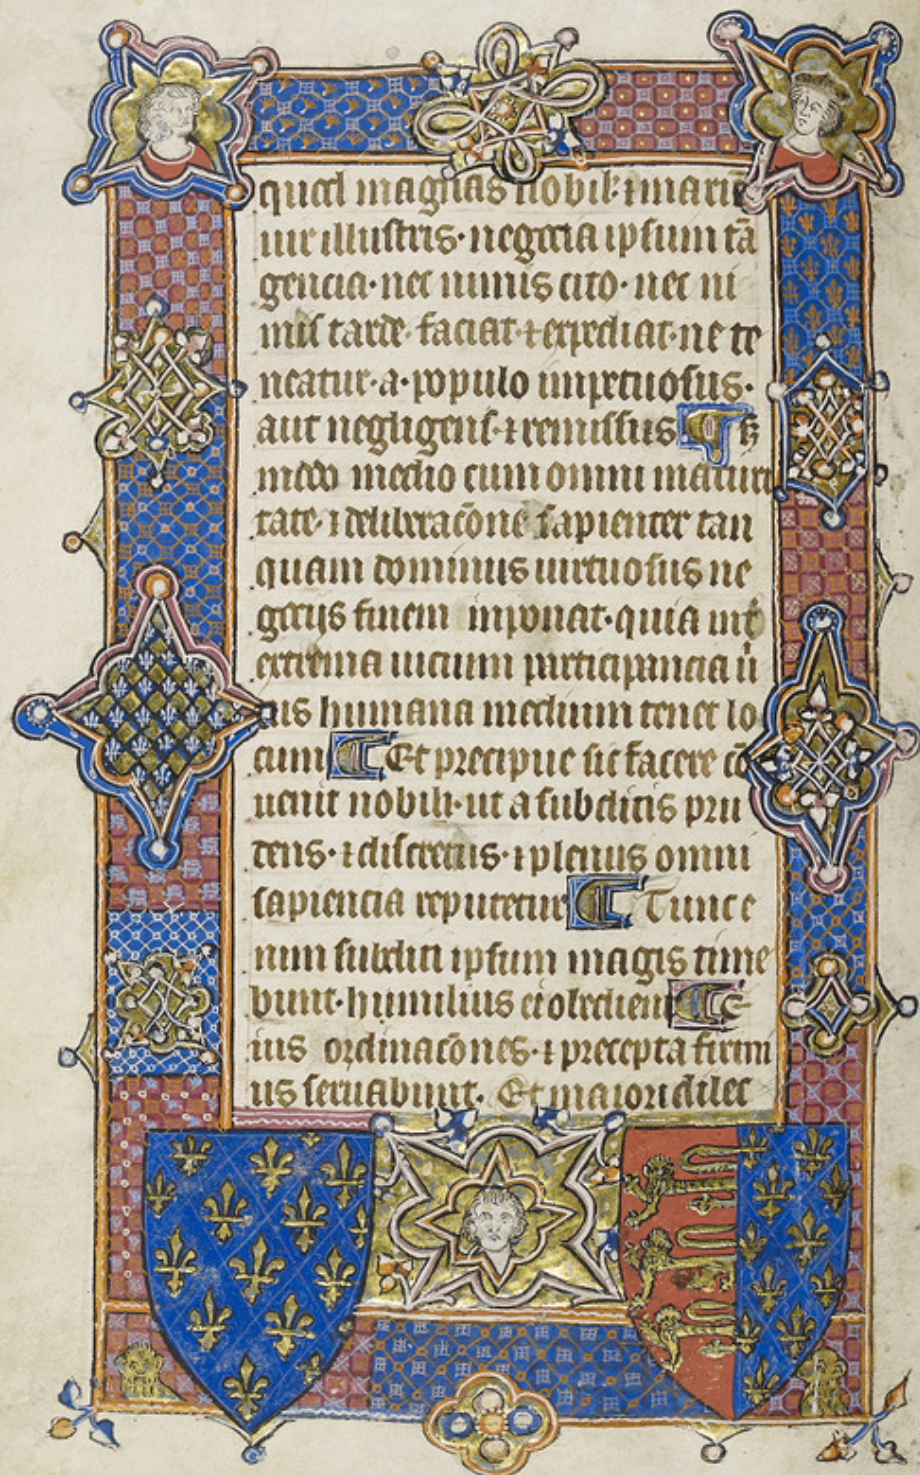 quod magnas nobil' ⁊ mariti
uir illustris· negocia ipsum tā
gencia· nec nimis cito· nec ni
mis tarde· faciat· ⁊ expediat· ne te
neatur· a· populo impetuosus·
aut negligens· ⁊ remissus ¶ Sȝ
modo medio cum omni maturi
tate· ⁊ deliberacōne sapienter tan
quam dominus uirtuosus ne
gociis finem inponat· quia int̄
extrema uicium participancia ū
tus humana medium tenet lo
cum ¶ Et precipue sic facere cō
uenit nobili· ut a subditis pru
dens· ⁊ discretus· ⁊ plenus omni
sapiencia reputetur ¶ Tunc e
nim subditi ipsum magis time
bunt· humilius ei obedient ¶ ē
ius ordinacōnes· ⁊ precepta firmi
us seruabunt. Et maiori dilec